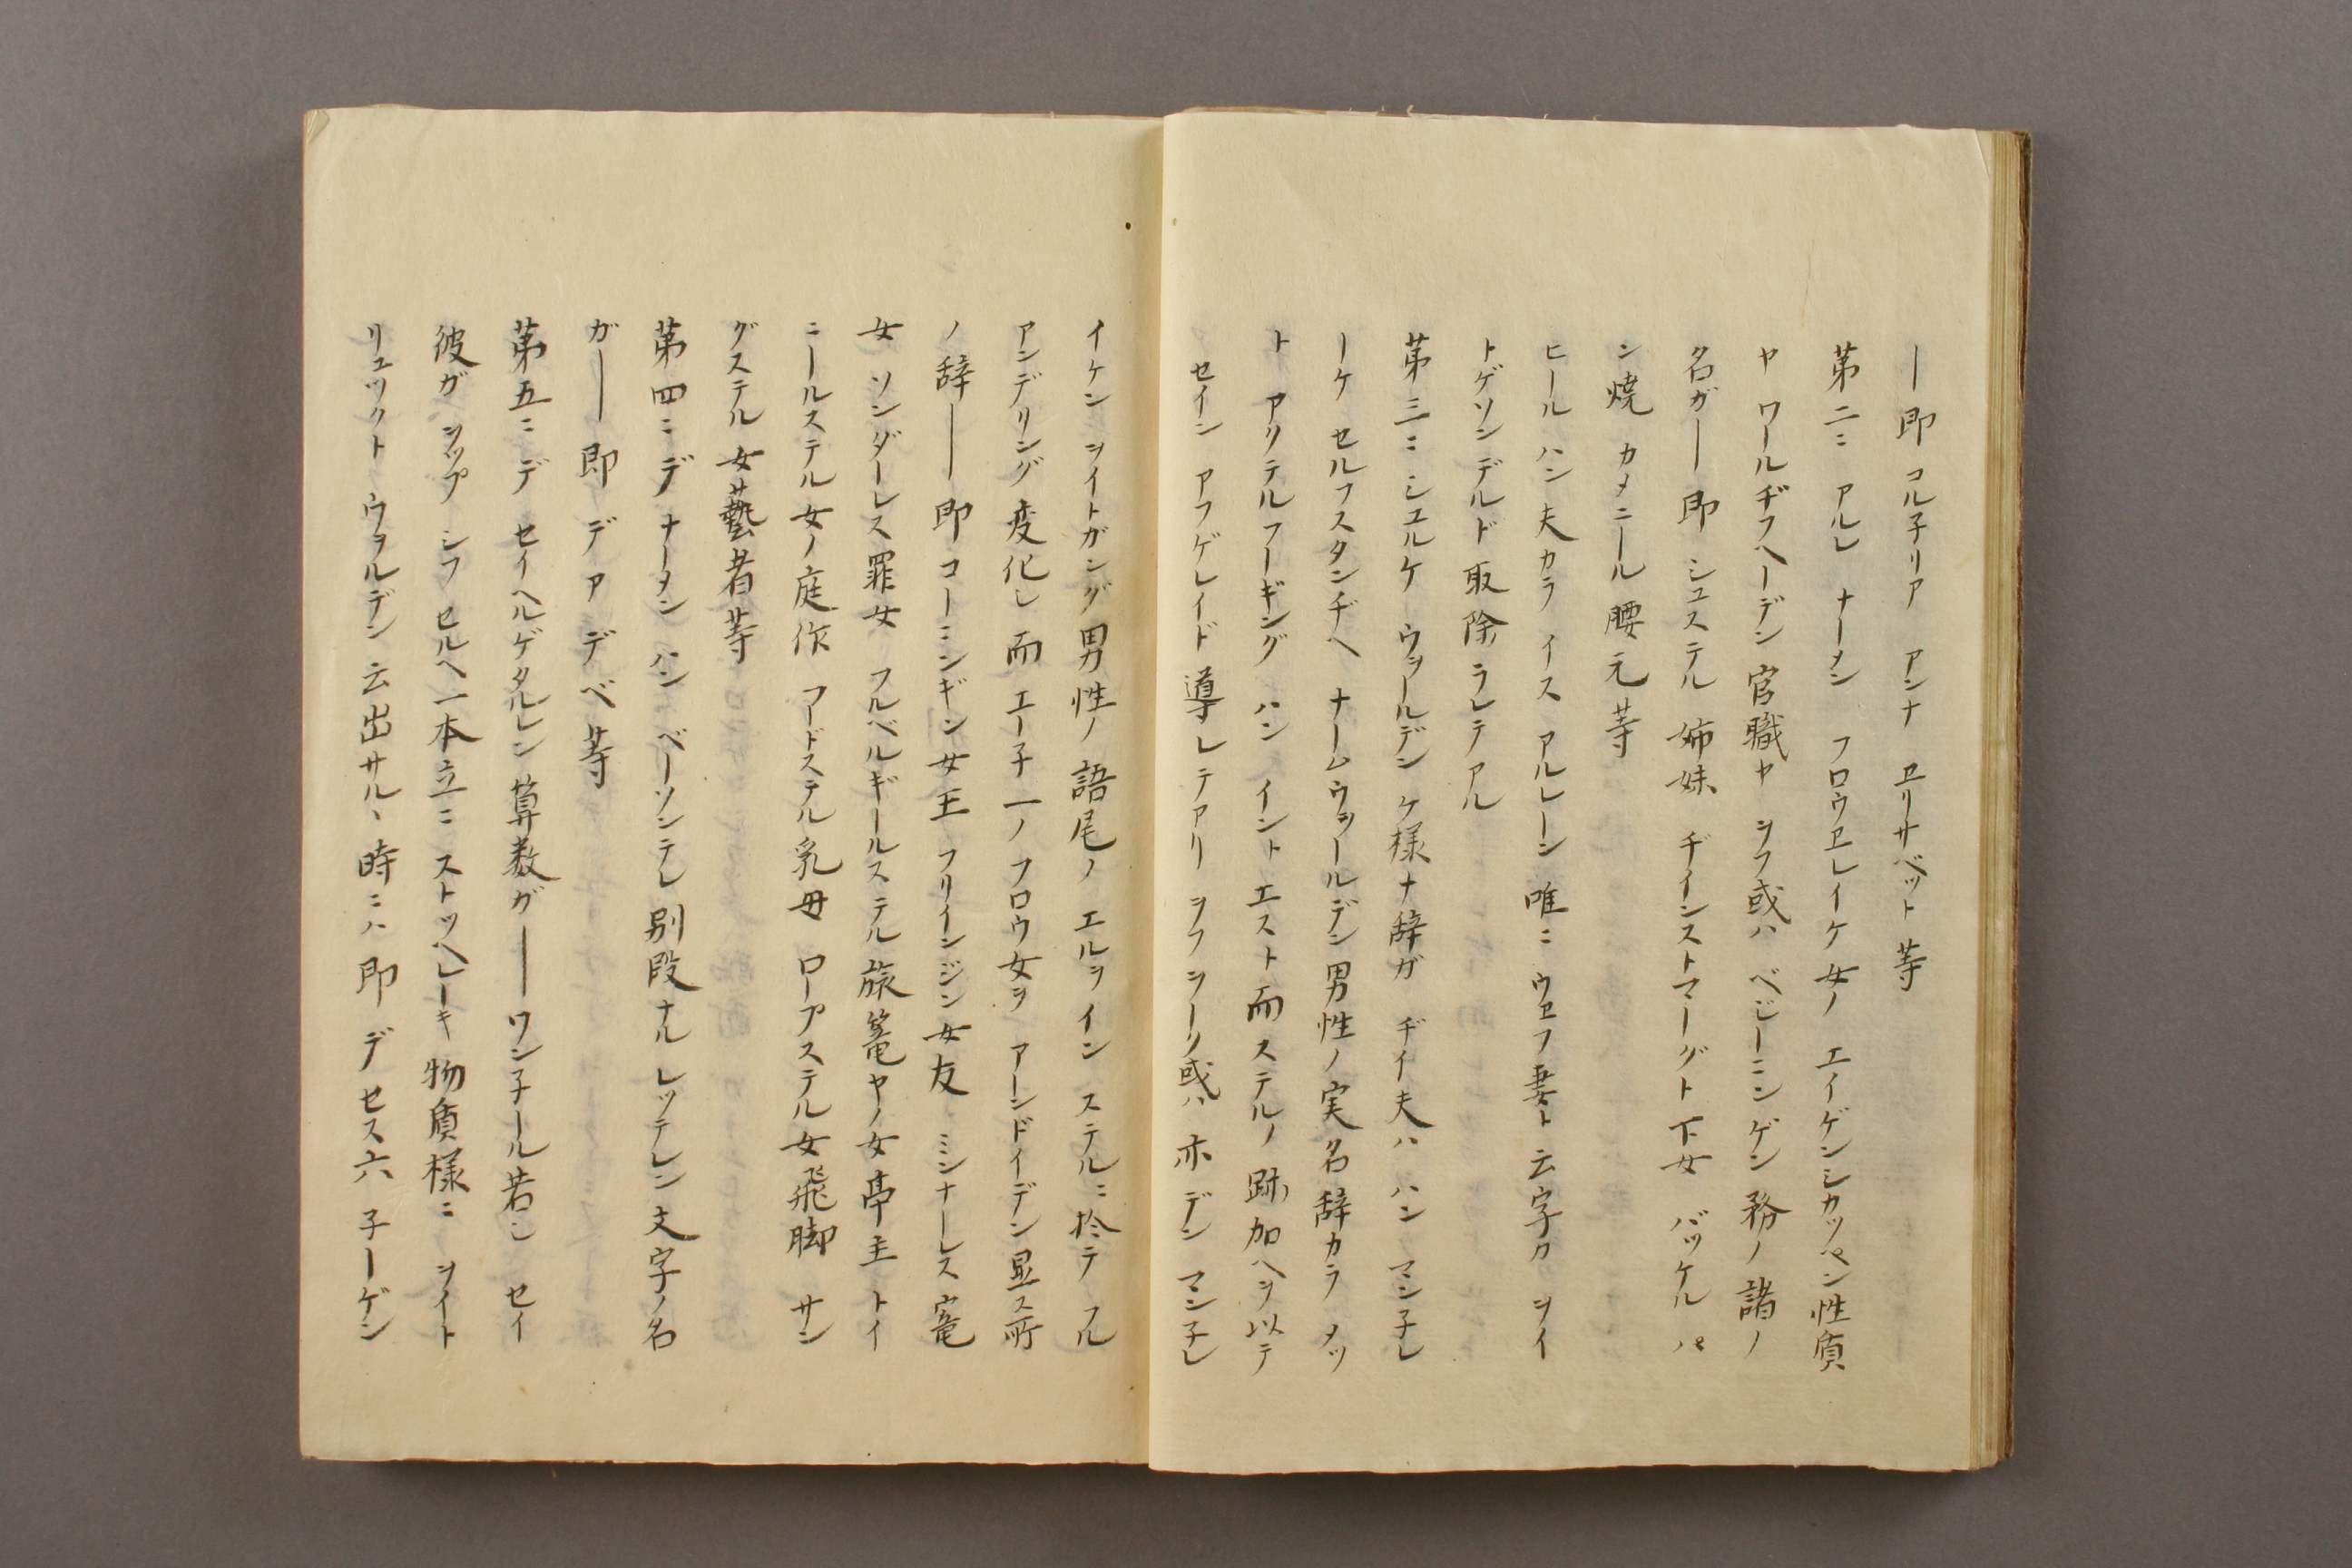 ｜即 コル子リア アンナ ヱリサベット 等
第二ニ アルレ ナーメン フロウヱレイケ 女ノ エイゲンシカッペン 性質
ヤ ワールヂフヘーデン 官職ヤ ヲフ 或ハ ベジーニンゲン 務ノ 諸ノ
名ガ｜ 即 シュステル 姉妹 ヂインストマーグト 下女 バッケル パ
ン焼 カメニール 腰元 等
ヒール ハン 夫カラ イス アルレーン 唯ニ ウヱフ 妻ト 云字カ ヲイ
トゲソンデルド 取除ラレテアル
第三ニ シュルケ ウヲールデン ケ様ナ 辞ガ ヂイ 夫ハ ハン マン子レ
ーケ セルフスタンヂヘ ナームウヲールデン 男性ノ 実名辞カラ メッ
ト アクテルフーギング ハン イント エスト 而 ステルノ 跡加ヘヲ以テ
セイン アフゲレイド 導レテアリ ヲフ ヲーク 或ハ 亦 デン マン子レ
イケン ヲイトガング 男性ノ 語尾ノ エルヲ イン ステルニ 於テ フル
アンデリング 変化シ 而 エー子 一ノ フロウ 女ヲ アーンドイデン 显ス所
ノ 辞｜ 即 コーニンギン 女王 フリインジン 女友 ミンナーレス 寵
女 ソンダーレス 罪女 フルベルギールステル 旅篭ヤノ女亭主 トイ
ニールステル 女ノ庭作 フードステル 乳母 ロープステル 女飛脚 サン
グステル 女藝者 等
第四ニ デ ナーメン ハン ベーソンテレ 別段ナル レッテレン 文字ノ名
ガ｜ 即 デア デベ 等
第五ニ デ セイヘルゲタルレン 算数ガ｜ワン子ール 若シ セイ
彼ガ ヲップ シフ セルヘ 一本立ニ ストッヘレーキ 物質様ニ ヲイト
リュックト ウヲルデン 云出サルヽ時ニハ 即 デ セス 六 子ーゲン